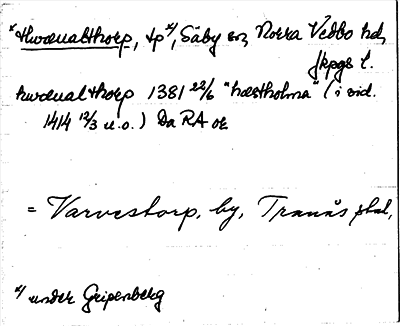 *hwænalthorp, tp x/, Säby sn, Norra Vedbo hd,
Jkpgs l.
hwænalthorp 1381 22/6 "hæstholma" (i vid.
1414 12/3 u.o.) Da RA or
= Varvestorp, by, Tranås stad,
x/ under Gripenberg